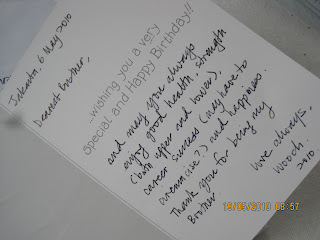 Jakarta, 6 May 2010
Dearest brother,
...wishing you a very
special and Happy Birthday!!
and may you always
enjoy good health, strength
(both upper and lower),
career success (may have to
and happiness.
Thank you for being my
Brother.
love always,
2010
19/05/2010 08:57